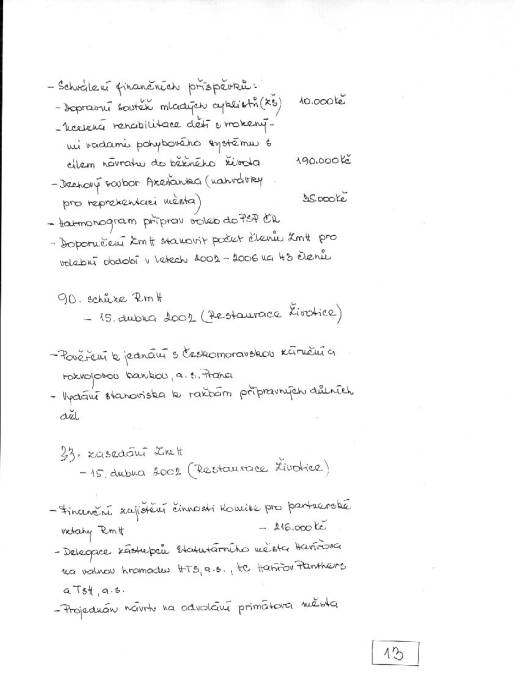 - Schválení finančních příspěvků:
- Dopravní soutěž mladých cyklistů (ZŠ) 10.000 Kč
- Ucelená rehabilitace dětí s vrozený-
mi vadami pohybového systému s
cílem návratu do běžného života 190.000 Kč
- Dechový soubor (nahrávky
pro reprezentaci města) 35.000 Kč
- Harmonogram příprav voleb do PSP ČR
- Doporučení ZmH stanovit počet členů ZmH pro
volební období v letech 2002 - 2006 na 43 členů
90. schůze RmH
- 15. dubna 2002 (Restaurace Životice)
- Pověření k jednání s Českomoravskou záruční a
rozvojovou bankou, a.s. Praha
- Vydání stanoviska k ražbám přípravných důlních
děl
33. zasedání ZmH
- 15. dubna 2002 (Restaurace Životice)
- Finanční zajištění činnosti Komise pro partnerské
vztahy RmH - 216.000 Kč
- Delegace zástupců Statutárního města Havířova
na valnou hromadu HTS, a.s., HC Havířov Panthers
a TSH, a.s.
- Projednán návrh na odvolání primátora města
13